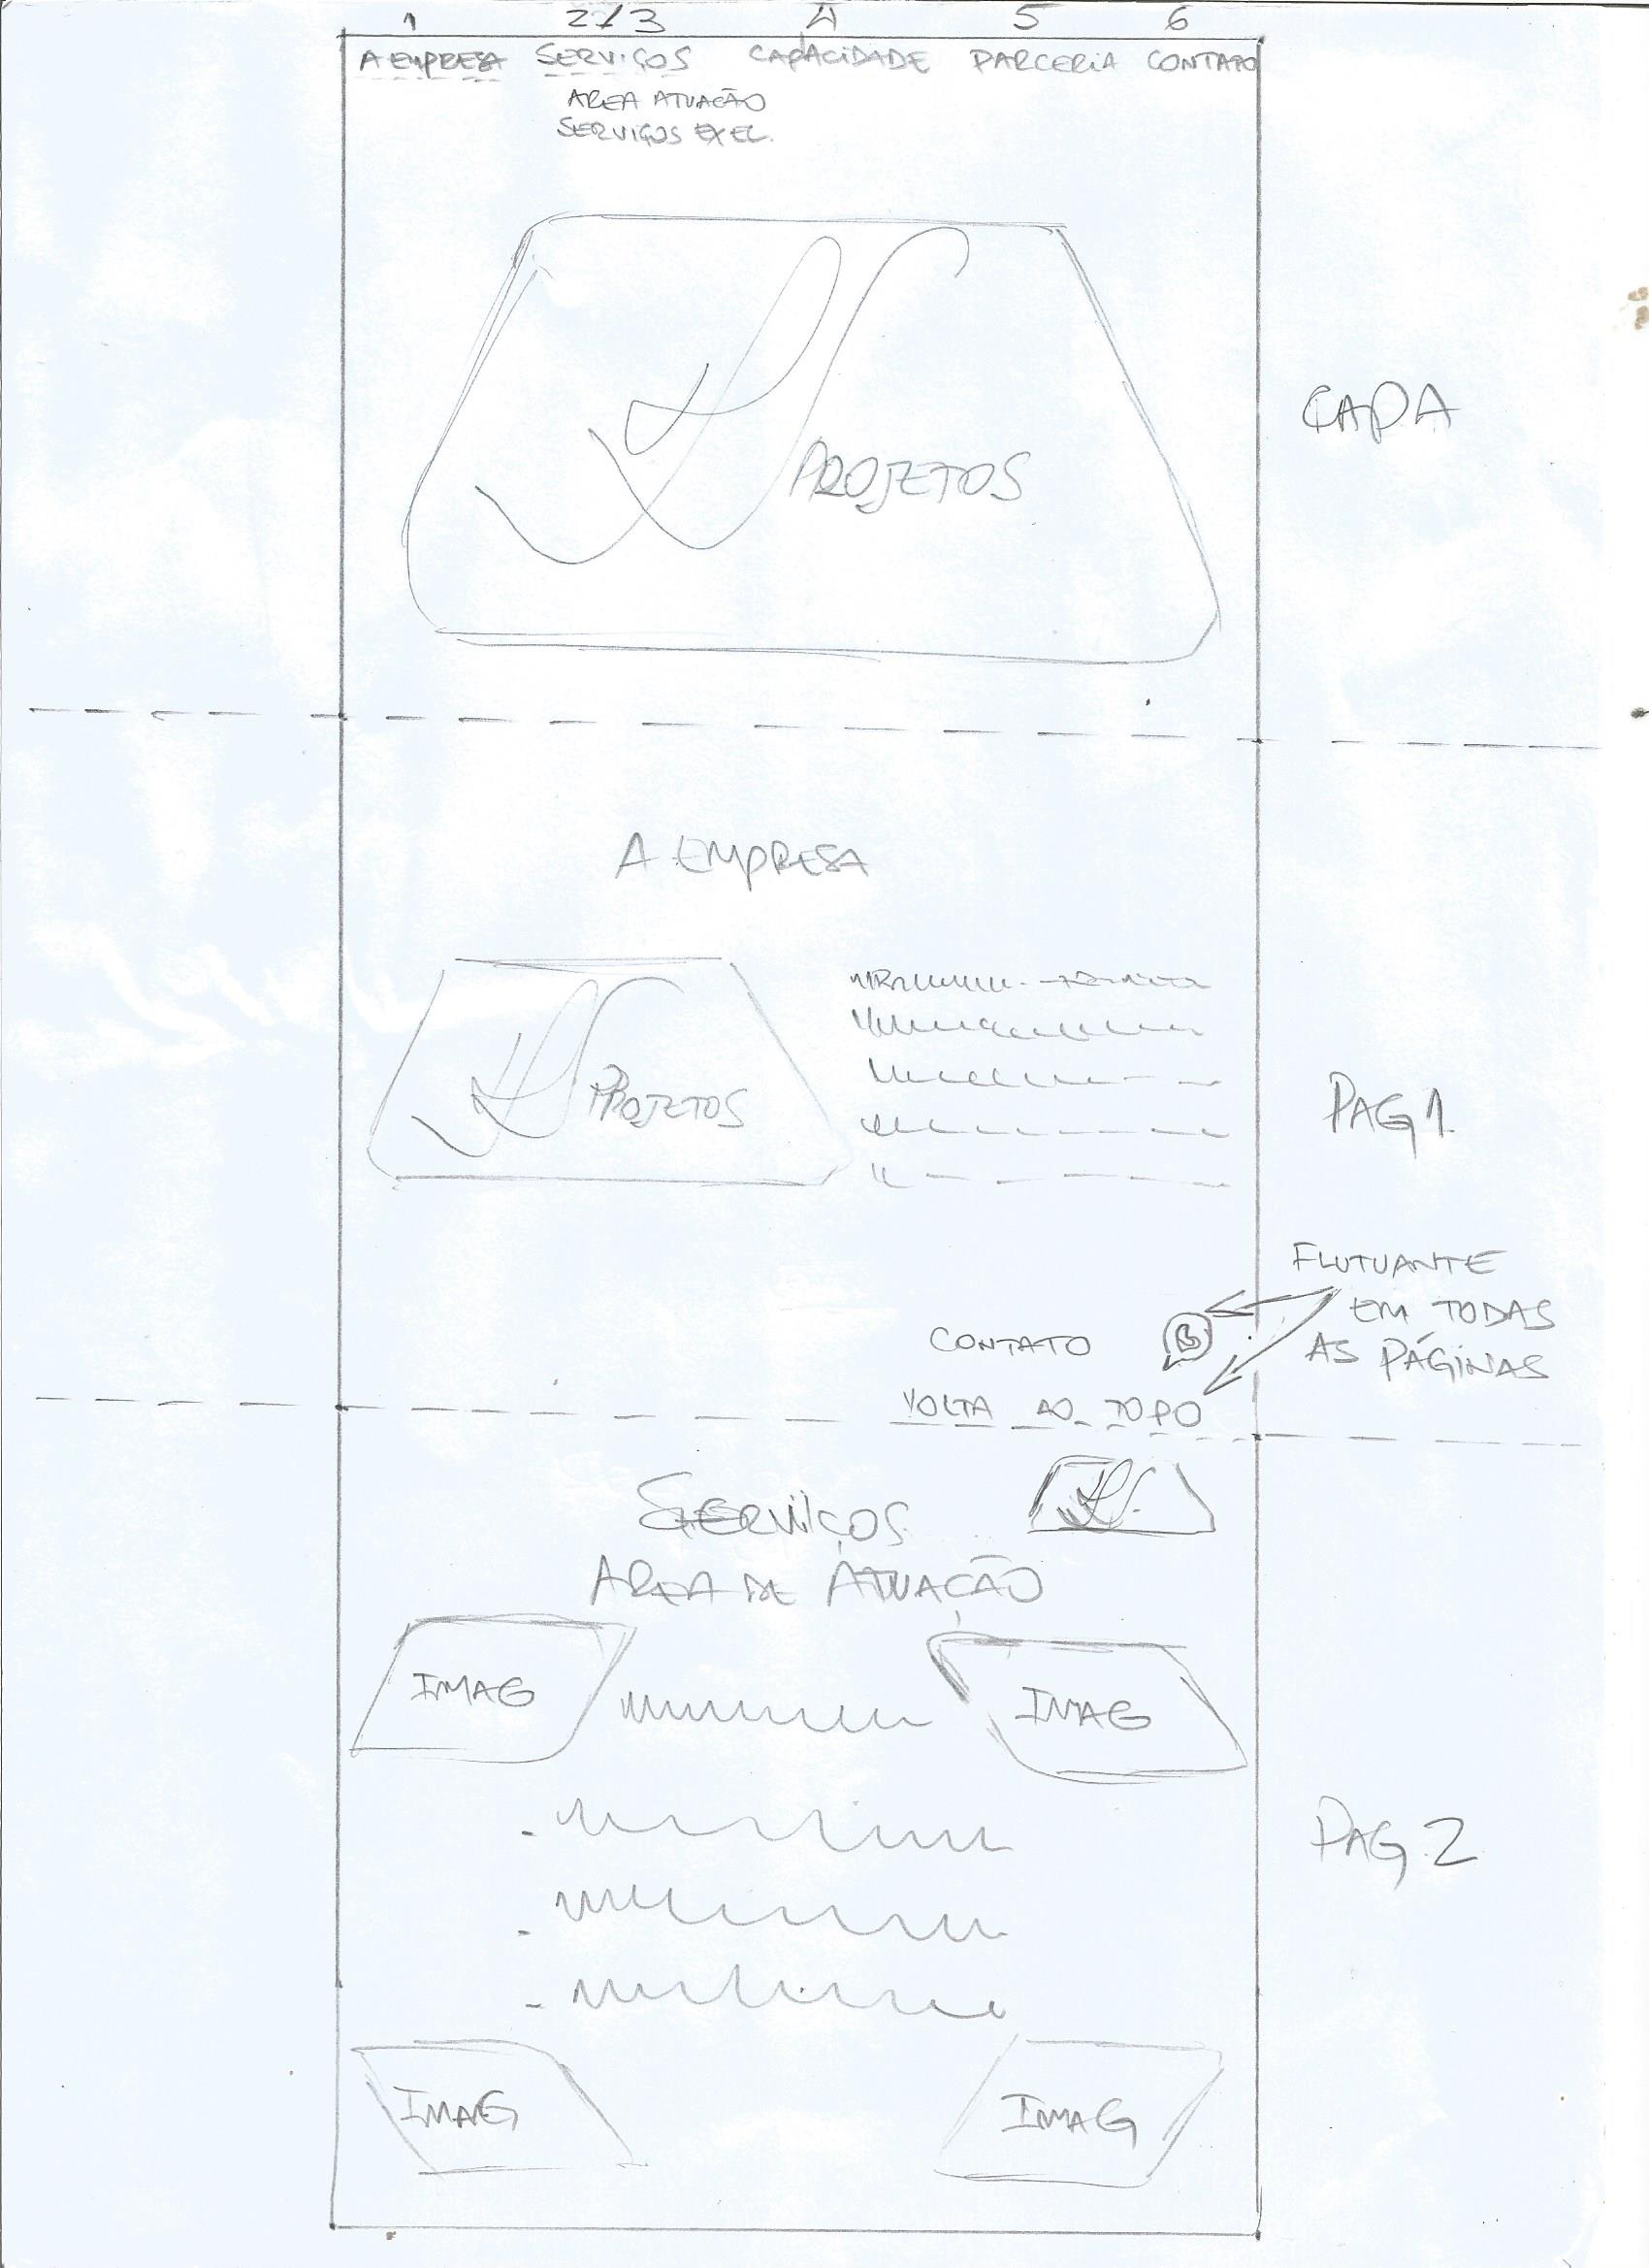 1 2/3 4 5 6
A EMPRESA SERVIÇOS CAPACIDADE PARCERIA CONTATO
AREA ATUAÇÃO
SERVIÇOS EXEC.
PROJETOS
CAPA
A EMPRESA
PROJETOS
PAG 1.
FLUTUANTE
EM TODAS
AS PÁGINAS
CONTATO
VOLTA AO TOPO
SERVIÇOS
AREA DE ATUAÇÃO
IMAG
IMAG
PAG 2
IMAG
IMAG